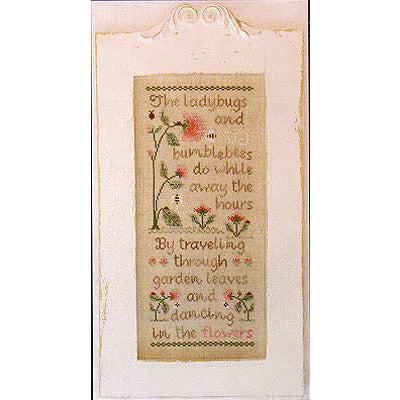 The ladybugs
and
bumblebees
do while
away the
hours
By traveling
through
garden leaves
and
dancing
in the flowers